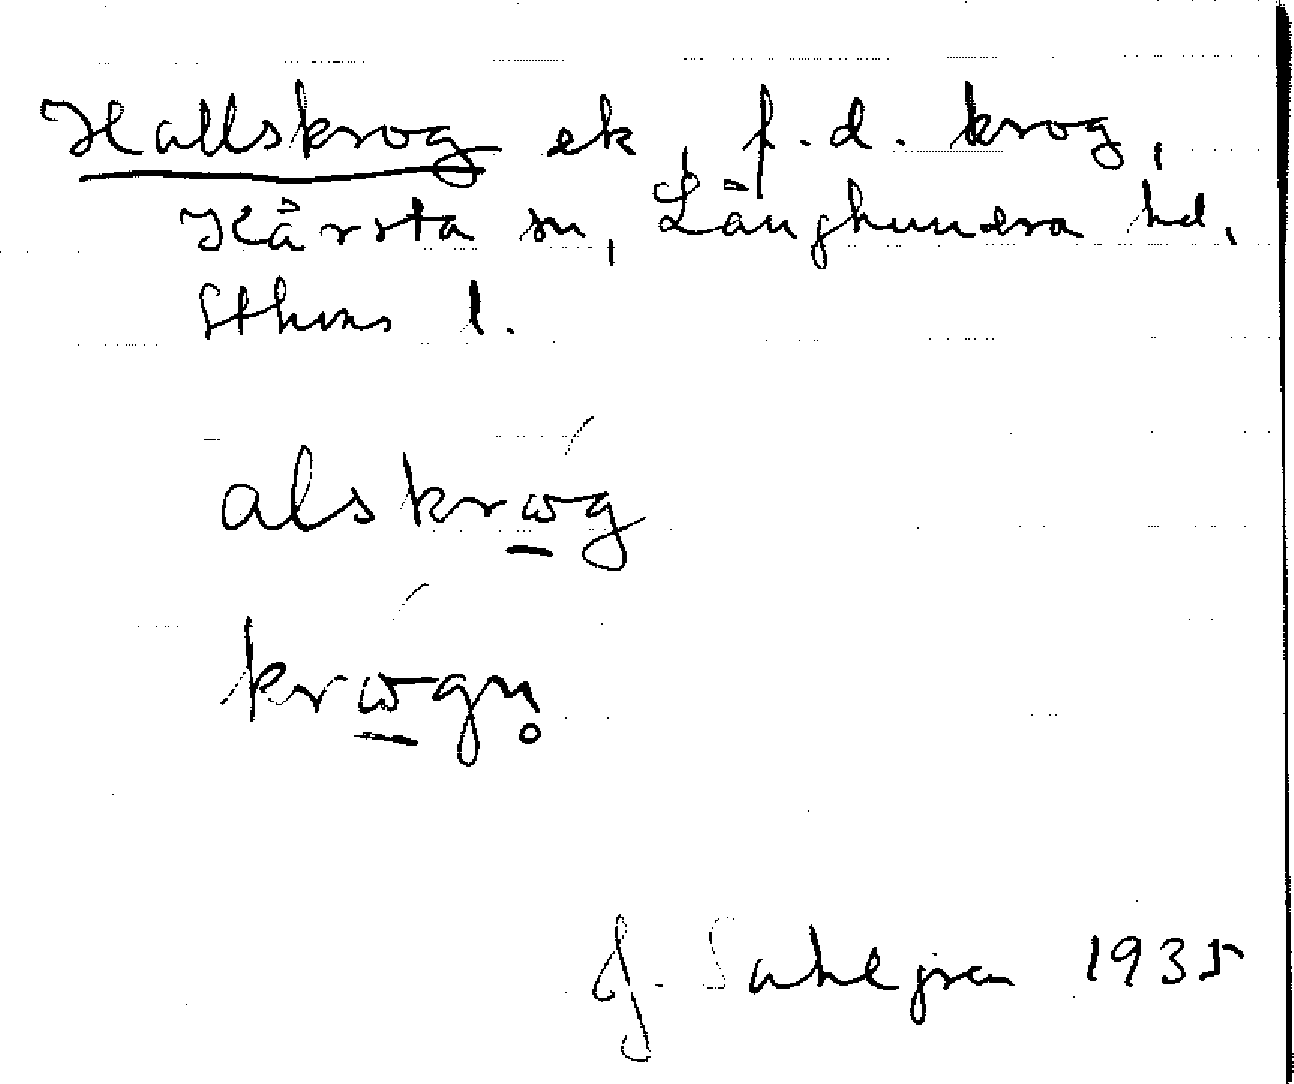 Hallskrog ek, f.d. krog,
Kårsta sn, Långhundra hd,
Sthms l.
alskrώ̱g
krώ̱gn̥
J. Sahlgren 1935